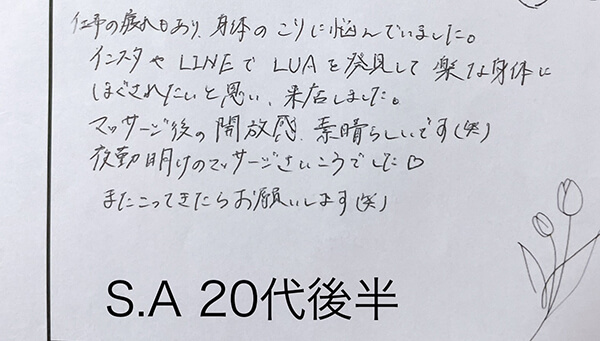 仕事の疲れもあり、身体のこりに悩んでいました。
インスタやLINEでLUAを発見して楽な身体に
ほぐされたいと思い、来店しました。
マッサージ後の開放感、素晴らしいです(笑)
夜勤明けのマッサージさいこうでした♡
またこってきたらお願いします(笑)
S.A 20代後半